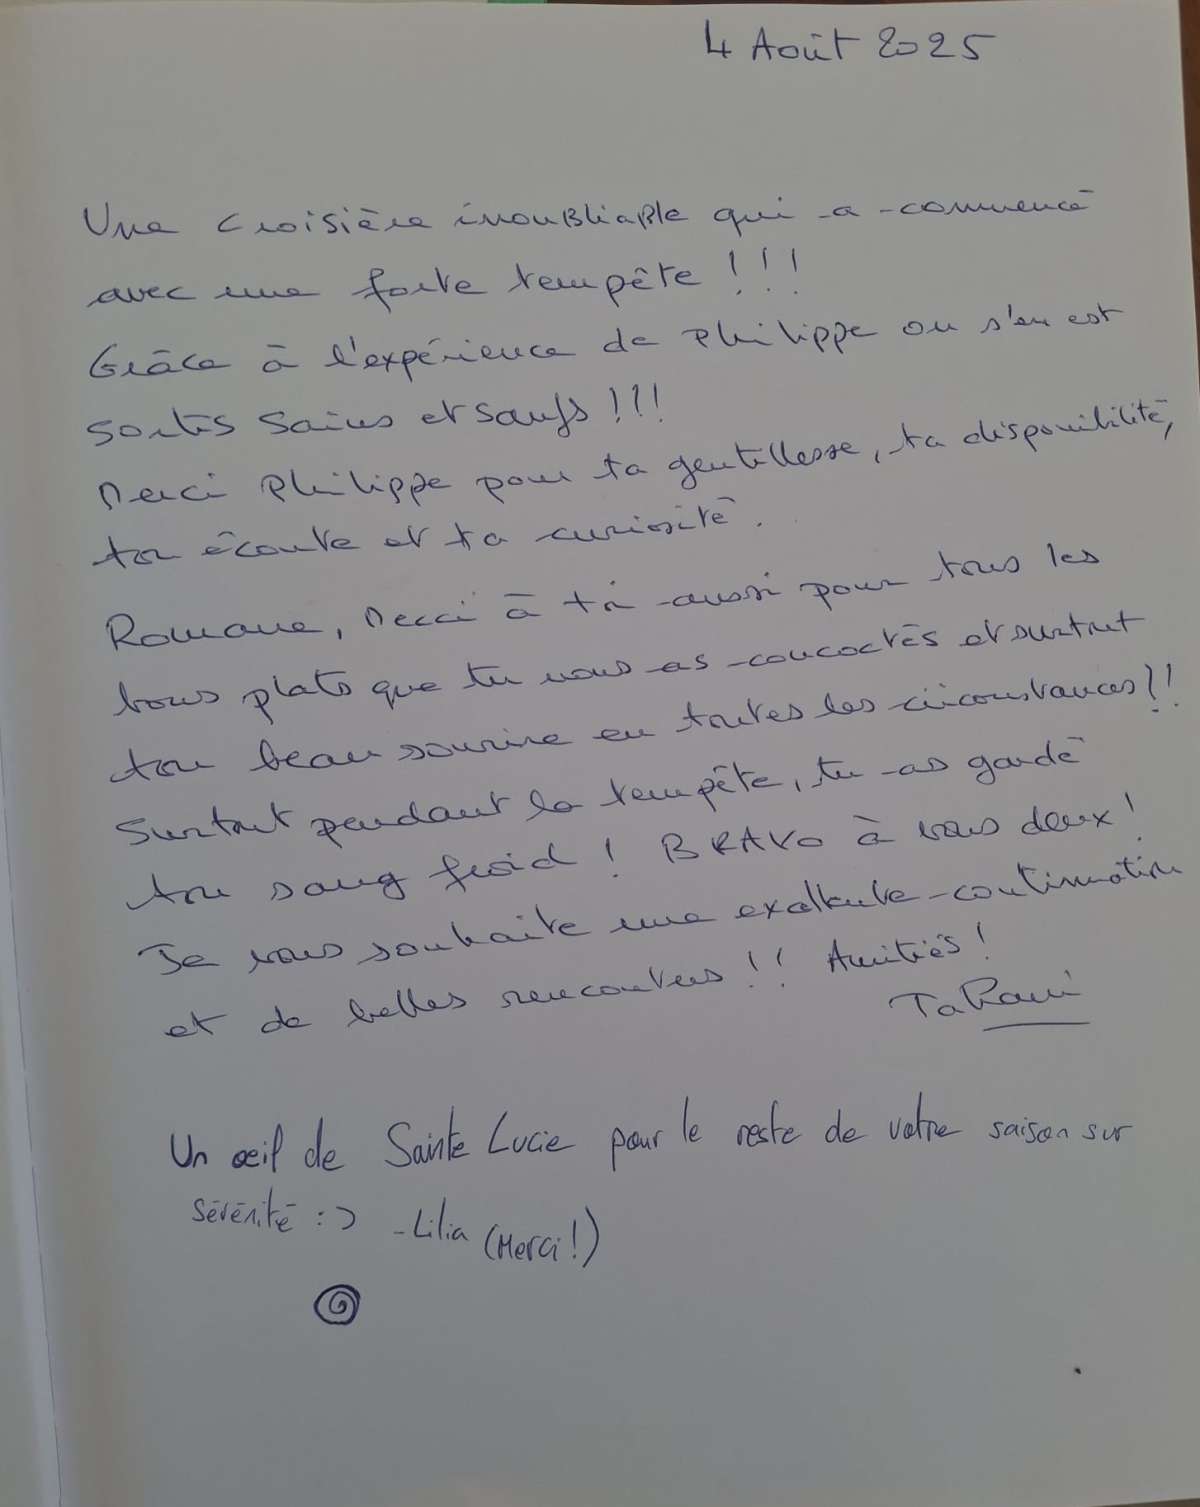 4 Août 2025
Une croisière inoubliable qui a commencé
avec une forte tempête !!!
Grâce à l'expérience de Philippe on s'en est
sortis sains et saufs !!!
Merci Philippe pour ta gentillesse, ta disponibilité,
ton écoute et ta curiosité.
Romane, Merci à toi aussi pour tous les
bons plats que tu nous as concoctés et surtout
ton beau sourire en toutes les circonstances !!
Surtout pendant la tempête, tu as gardé
ton sang froid ! BRAVO à vous deux !
Je vous souhaite une excellente continuation
et de belles rencontres !! Amitiés !
Un œil de Sainte Lucie pour le reste de votre saison sur
Sérénité :) - Lilia (Merci !)